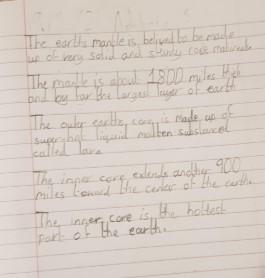 The earth's mantle is belived to be made
up of very solid and sturdy core materials.
The mantle is about 1800 miles thick
and by far the largest layer of earth
The outer earth's core, is made up of
super-hot liquid molten substances
called lava.
The inner core extends another 900
miles toward the center of the earth.
The inner core is the hottest
part of the earth.